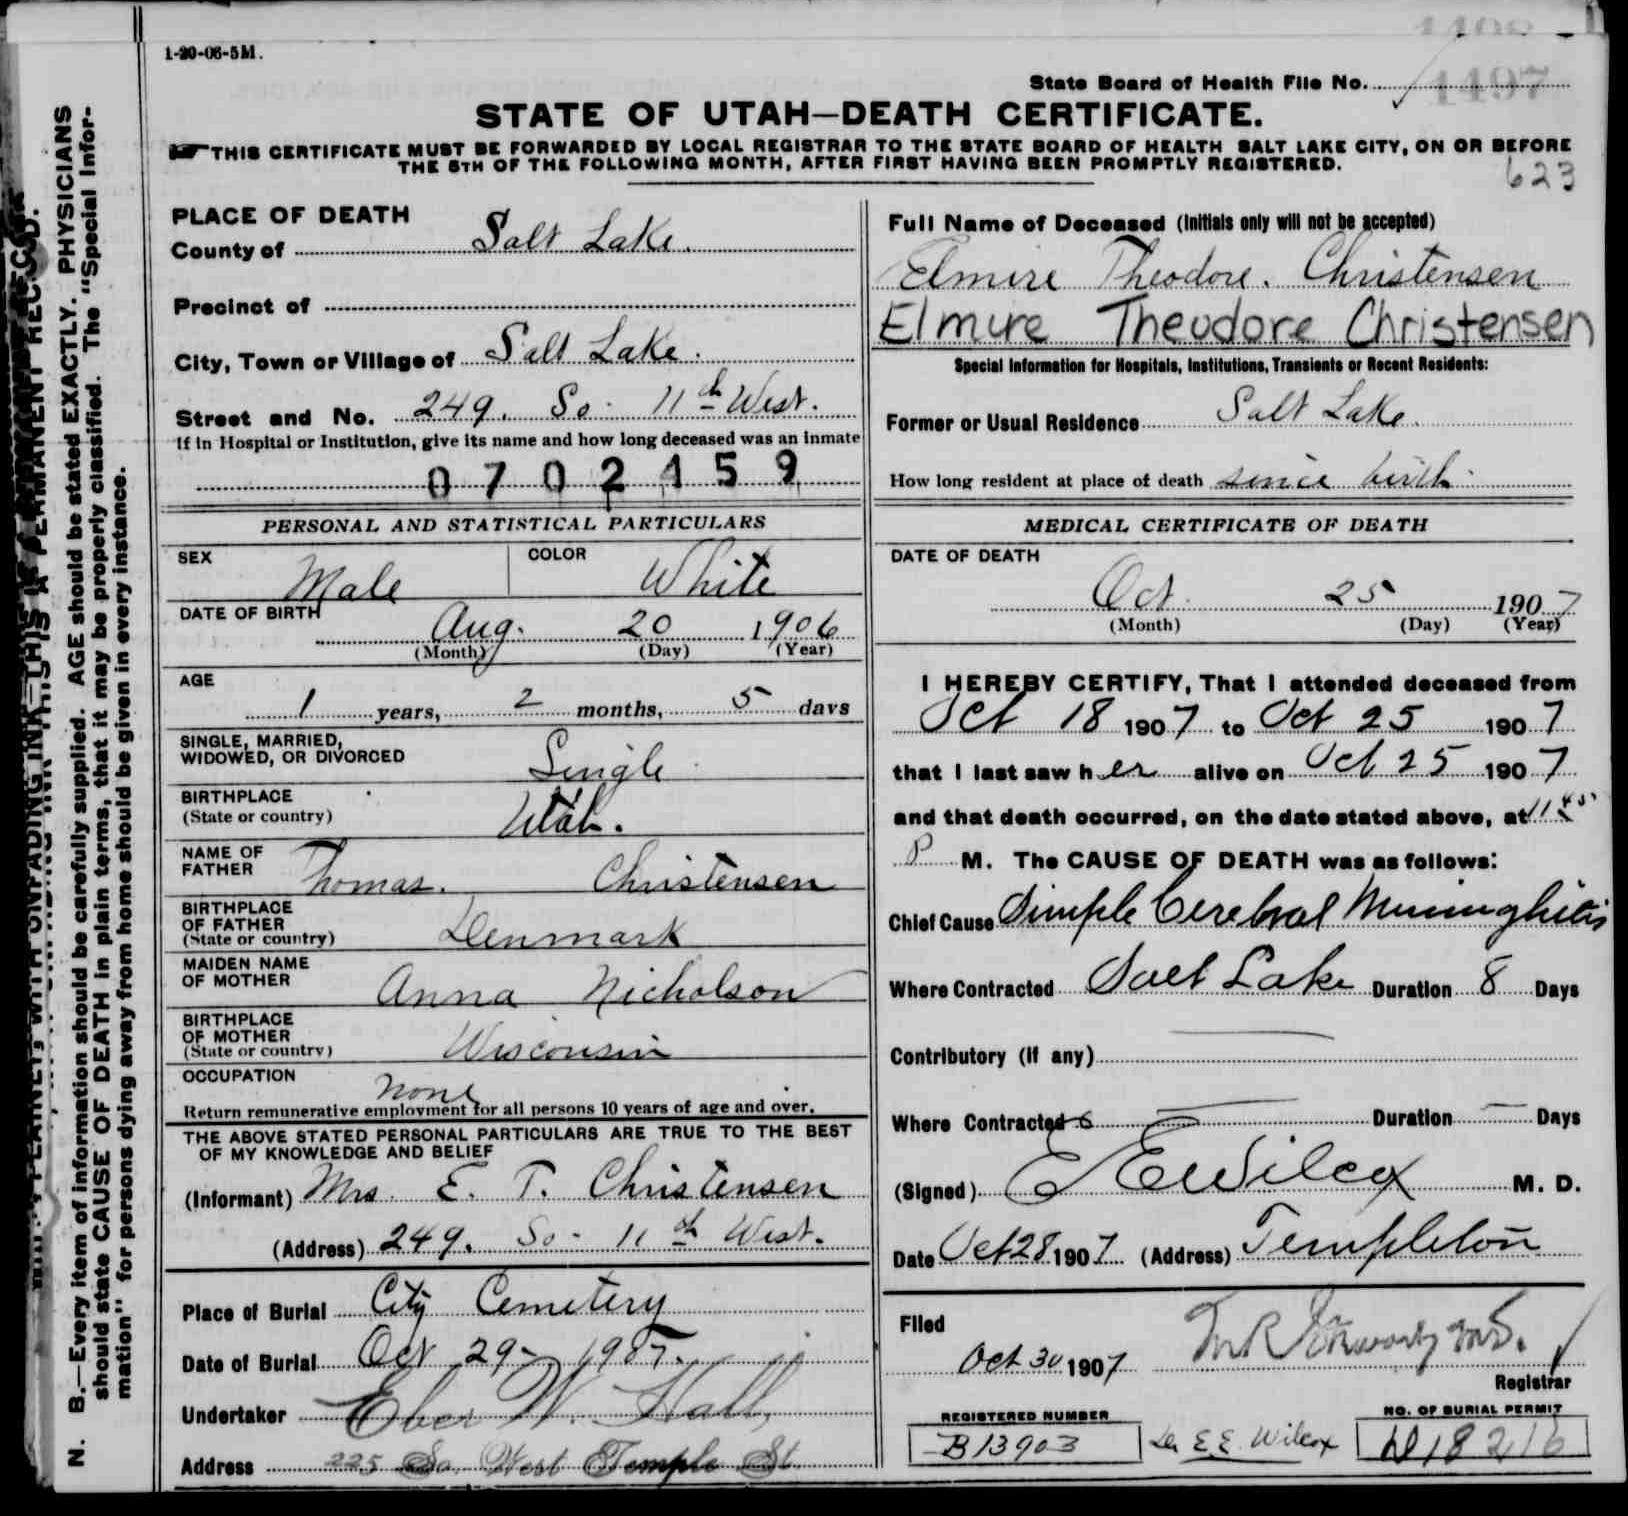 1-20-06-5M.
State Board of Health File No. 1497
STATE OF UTAH—DEATH CERTIFICATE.
THIS CERTIFICATE MUST BE FORWARDED BY LOCAL REGISTRAR TO THE STATE BOARD OF HEALTH SALT LAKE CITY, ON OR BEFORE
THE 5TH OF THE FOLLOWING MONTH, AFTER FIRST HAVING BEEN PROMPTLY REGISTERED.
623
PLACE OF DEATH
County of Salt Lake.
Precinct of
City, Town or Village of Salt Lake.
Street and No. 249. So. 11th West.
If in Hospital or Institution, give its name and how long deceased was an inmate
0702159
PERSONAL AND STATISTICAL PARTICULARS
SEX Male COLOR White
DATE OF BIRTH Aug. 20 1906
(Month) (Day) (Year)
AGE
1 years, 2 months, 5 days
SINGLE, MARRIED,
WIDOWED, OR DIVORCED Single
BIRTHPLACE
(State or country) Utah.
NAME OF
FATHER Thomas. Christensen
BIRTHPLACE
OF FATHER
(State or country) Denmark
MAIDEN NAME
OF MOTHER Anna Nicholson
BIRTHPLACE
OF MOTHER
(State or country) Wisconsin
OCCUPATION none
Return remunerative employment for all persons 10 years of age and over.
THE ABOVE STATED PERSONAL PARTICULARS ARE TRUE TO THE BEST
OF MY KNOWLEDGE AND BELIEF
(Informant) Mrs. E. T. Christensen
(Address) 249. So. 11th West.
Place of Burial City Cemetery
Date of Burial Oct 29- 1907.
Undertaker Eber W. Hall,
Address 225 So. West Temple St.
Full Name of Deceased (Initials only will not be accepted)
Elmire Theodore. Christensen
Elmire Theodore Christensen
Special Information for Hospitals, Institutions, Transients or Recent Residents:
Former or Usual Residence Salt Lake.
How long resident at place of death since birth.
MEDICAL CERTIFICATE OF DEATH
DATE OF DEATH
Oct. 25 1907
(Month) (Day) (Year)
I HEREBY CERTIFY, That I attended deceased from
Oct 18 1907 to Oct 25 1907
that I last saw her alive on Oct 25 1907
and that death occurred, on the date stated above, at 11 45
P M. The CAUSE OF DEATH was as follows:
Chief Cause Simple Cerebral Meninghitis
Where Contracted Salt Lake Duration 8 Days
Contributory (if any)
Where Contracted Duration Days
(Signed) E E Wilcox M. D.
Date Oct 28 1907 (Address) Templeton
Filed
Oct 30 1907
Registrar
REGISTERED NUMBER
B13903
Dr E E. Wilcox
NO. OF BURIAL PERMIT
D18216
N. B.—Every item of information should be carefully supplied. AGE should be stated EXACTLY. PHYSICIANS
should state CAUSE OF DEATH in plain terms, that it may be properly classified. The "Special Infor-
mation" for persons dying away from home should be given in every instance.